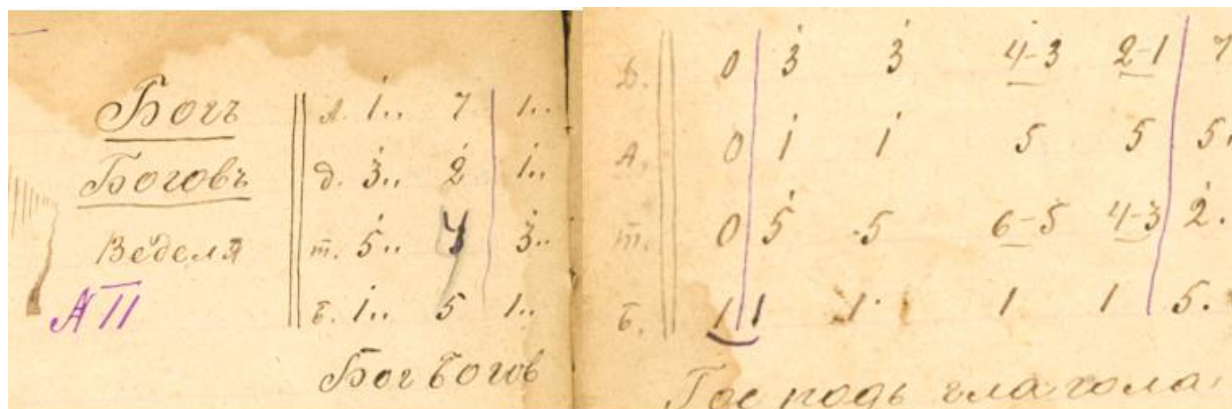 Богъ
Боговъ
Веделя
А II
д. 1̇.. 7 | 1..
д. 3̇.. 2̇ | 1̇..
т. 5̇.. 4 | 3̇..
б. 1.. 5 1..
Бог Богов
Д. 0 | 3̇ 3̇ 4̇-3 2̇-1 | 7
А. 0 | 1̇ 1̇ 5 5 | 5.
т. 0 | 5̇ 5 6-5 4-3 | 2̇.
б. 1 | 1 1. 1 1 | 5.
Гос подь гла гола